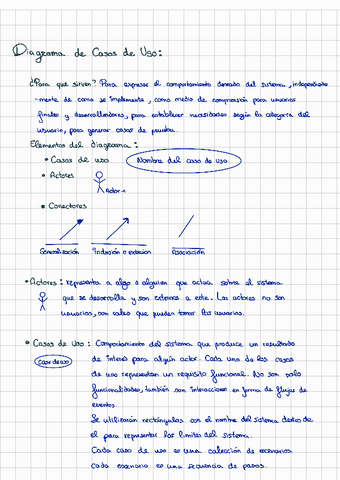 Diagrama de Casos de Uso:
¿Para que sirven? Para expresar el comportamiento deseado del sistema, independiente
-mente de como se implemente, como medio de comprensión para usuarios
finales y desarrolladores, para establecer necesidades según la categoría del
usuario, para generar casos de prueba.
Elementos del diagrama:
• Casos de uso
Nombre del caso de uso
• Actores
Actor-1
• Conectores
Generalización
Inclusión o extension
Asociación
• Actores: representa a algo o alguien que actua sobre el sistema
que se desarrolla y son externos a este. Los actores no son
usuarios, son roles que pueden tomar los usuarios.
• Casos de Uso: Comportamiento del sistema que produce un resultado
Caso de uso
de interés para algún actor. Cada uno de los casos
de uso representan un requisito funcional. No son solo
funcionalidades, también son interacciones en forma de flujos de
eventos.
Se utilizarán rectángulos con el nombre del sistema dentro de
el para representar los limites del sistema.
Cada caso de uso es una colección de escenarios
cada escenario es una secuencia de pasos.